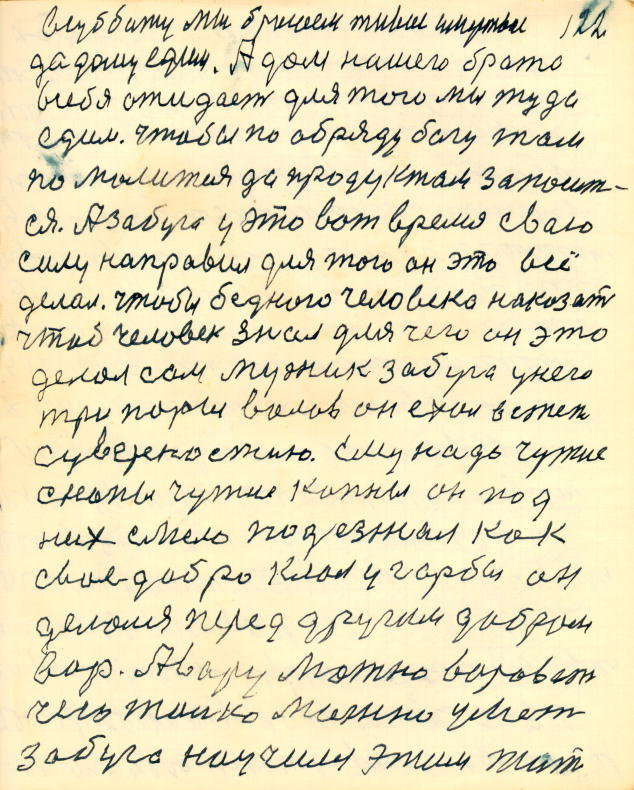 в субботу мы бросаем тивы 122
да дому едим. А дом нашего брата
всебя ожидает для того мы туда
едим. чтобы по обряду богу там
по молится да продуктам запост-
ся. А забуга у это вот время сваю
силу направил для того он это всё
делал. чтобы бедного человека наказат
чтоб человек знал для чего он это
делал сам мужик забуга у него
три пары валов он ехал в степ
суверенностию. ему надо чужие
снопы чужие копны он под
них смело подезжал как
свое добро клал у гарбы он
делался перед другим добром
вор. А вару можно вороват
чего толко можно умет
забуга научился этим